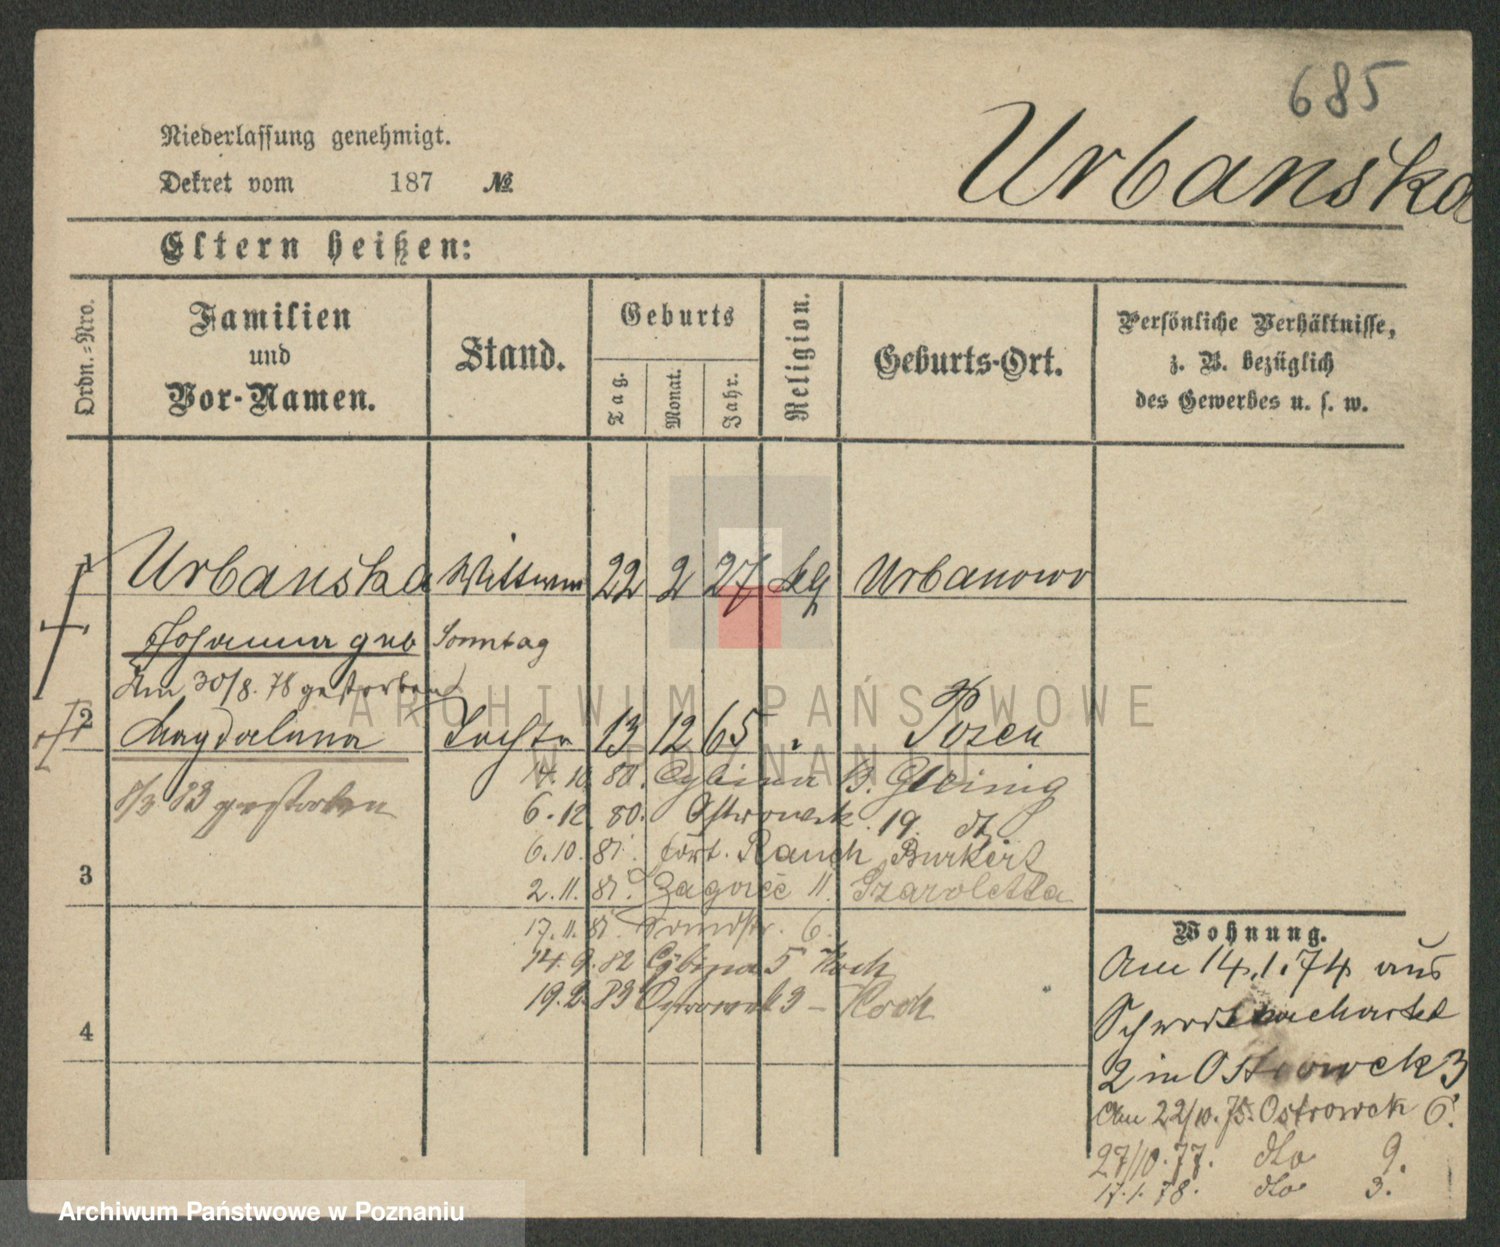 685
Niederlassung genehmigt.
Urbanska
Dekret vom 187 №
Eltern heißen:
Ordn.-Nro.
Familien
und
Vor-Namen.
Stand.
Geburts
Tag.
Monat.
Jahr.
Religion.
Geburts-Ort.
Persönliche Verhältnisse,
z. B. bezüglich
des Gewerbes u. s. w.
1 Urbanska Wittwe 22 2 27 Urbanowo
Johanna geb Sonntag
Am 30/8. 78 gestorben
2 Magdalena Tochter 13 12 65 " Posen
8/3 83 gestorben
14. 10. 80. Cybina B. Gleinig
6. 12. 80. Ostrowek 19. dto
6. 10. 81. Rauch Burkert
3
2. 11. 81. Zagorze 11.
17. 11. 81. 6.
14. 9. 82 Cybina 5 Koch
19. 2. 83 Ostrowek 3 - Koch
4
Wohnung.
Am 14.1.74 aus
2 in Ostrowek 3
Am 22/10. 75. Ostrowek 6.
27/10. 77. dto 9.
17. 1. 78. dto 3.
ARCHIWUM PAŃSTWOWE
W POZNANIU
Archiwum Państwowe w Poznaniu